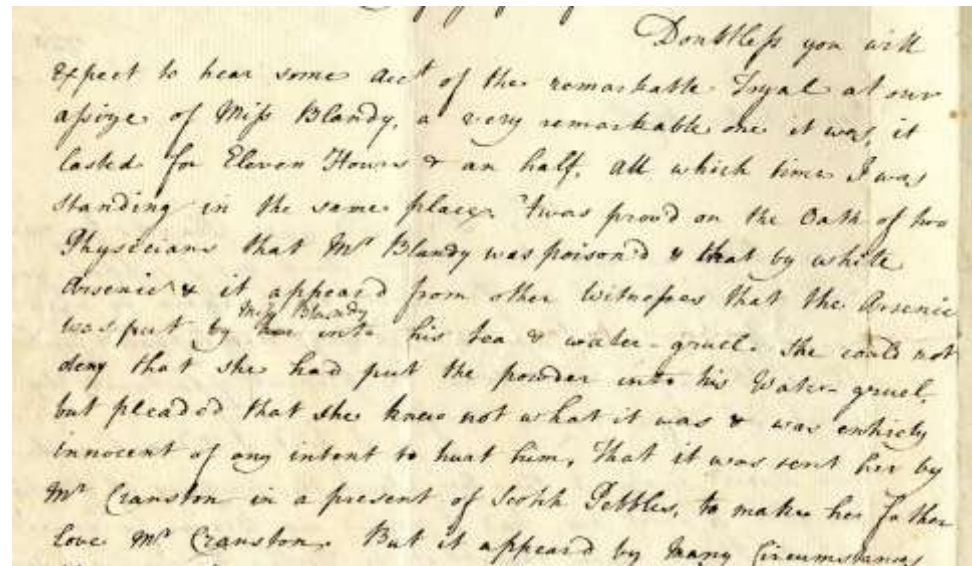 Doubtless you will
expect to hear some acct of the remarkable Tryal at our
assize of Miss Blandy, a very remarkable one it was, it
lasted for Eleven Hours & an half, all which time I was
standing in the same place. 'twas prov'd on the Oath of two
Physicians that Mr Blandy was poison'd & that by white
Arsenic & it appear'd from other Witnesses that the Arsenic
Miss Blandy
was put by her into his tea & water-gruel. She could not
deny that she had put the powder into his Water-gruel,
but pleaded that she knew not what it was & was entirely
innocent of any intent to hurt him, That it was sent her by
Mr Cranston in a present of Scotch Pebbles, to make her father
love Mr Cranston. But it appear'd by many Circumstances